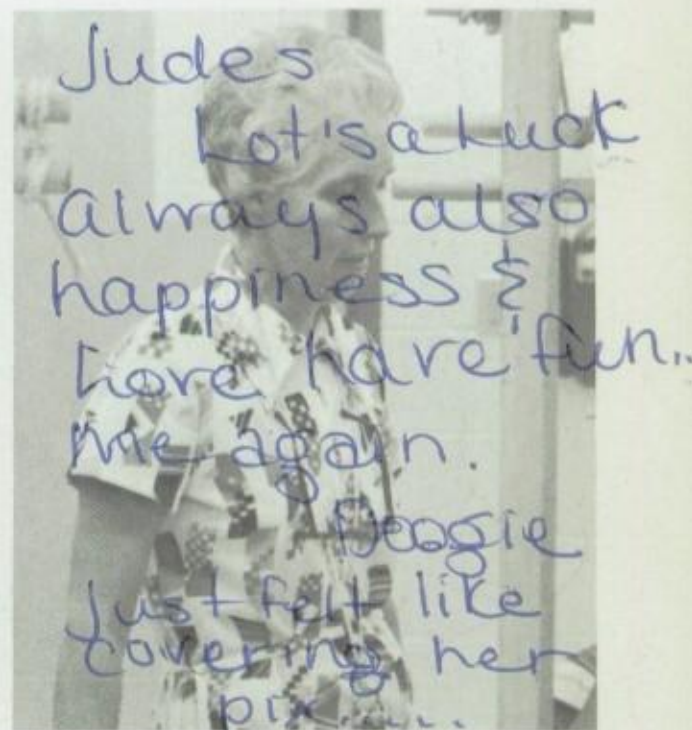 Judes
Lot'sa Luck
always also
happiness &
Love have fun..
me again.
Boogie
just felt like
covering her
pix.....